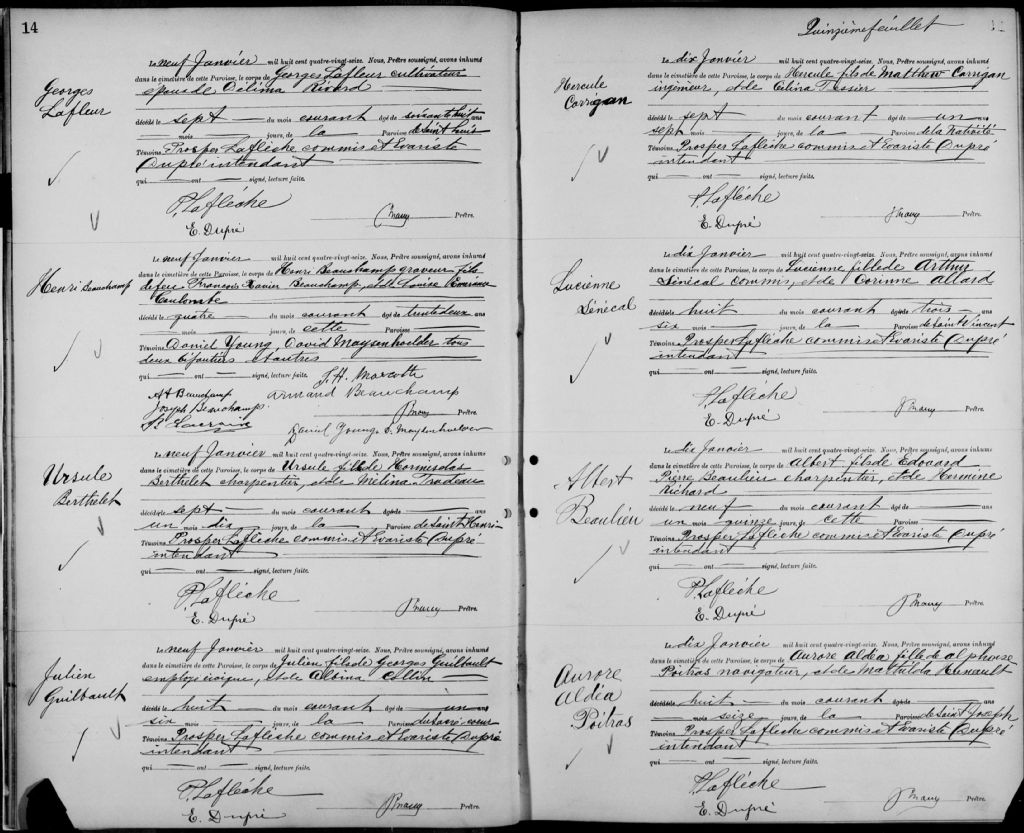 14
Georges
Lafleur
Le neuf Janvier mil huit cent quatre-vingt-seize. Nous, Prêtre soussigné, avons inhumé
dans le cimetière de cette Paroisse, le corps de Georges Lafleur cultivateur
époux de Célima Rivard
décédé le sept du mois courant âgé de soixante huit ans
mois jours, de la Paroisse de Saint Louis
Témoins Prosper Laflèche commis et Evariste
Dupré intendant
qui ont signé, lecture faite.
P. Laflèche
E. Dupré
Prêtre.
Henri Beauchamp
Le neuf Janvier mil huit cent quatre-vingt-seize. Nous, Prêtre soussigné, avons inhumé
dans le cimetière de cette Paroisse, le corps de Henri Beauchamp graveur fils
de feu François Xavier Beauchamp, et de Louise
Coulombe
décédé le quatre du mois courant âgé de trente deux ans
mois jours, de cette Paroisse
Témoins Daniel Young, David Maysenhoelder tous
deux bijoutiers et autres
qui ont signé, lecture faite.
A H Beauchamp
Armand Beauchamp
Joseph Beauchamp
Prêtre.
Daniel Young
Ursule
Berthelet
Le neuf Janvier mil huit cent quatre-vingt-seize. Nous, Prêtre soussigné, avons inhumé
dans le cimetière de cette Paroisse, le corps de Ursule fille de Hormisdas
Berthelet charpentier, et de Mélina Trudeau
décédée le sept du mois courant âgé de ans
un mois dix jours, de la Paroisse de Saint Henri
Témoins Prosper Laflèche commis et Evariste Dupré
intendant
qui ont signé, lecture faite.
P. Laflèche
E. Dupré
Prêtre.
Julien
Guilbault
Le neuf Janvier mil huit cent quatre-vingt-seize. Nous, Prêtre soussigné, avons inhumé
dans le cimetière de cette Paroisse, le corps de Julien fils de Georges Guilbault
employé civique, et de Albina Collin
décédé le huit du mois courant âgé de un ans
six mois jours, de la Paroisse du Sacré-coeur
Témoins Prosper Laflèche commis et Evariste Dupré
intendant
qui ont signé, lecture faite.
P. Laflèche
E. Dupré
Prêtre.
Quinzième feuillet
Hercule
Corrigan
Le dix Janvier mil huit cent quatre-vingt-seize. Nous, Prêtre soussigné, avons inhumé
dans le cimetière de cette Paroisse, le corps de Hercule fils de Matthew Corrigan
ingénieur, et de Célina Tessier
décédé le sept du mois courant âgé de un ans
sept mois jours, de la Paroisse de la Nativité
Témoins Prosper Laflèche commis et Evariste Dupré
intendant
qui ont signé, lecture faite.
P. Laflèche
E. Dupré
Prêtre.
Lucienne
Sénécal
Le dix Janvier mil huit cent quatre-vingt-seize. Nous, Prêtre soussigné, avons inhumé
dans le cimetière de cette Paroisse, le corps de Lucienne fille de Arthur
Sénécal commis, et de Corinne Allard
décédée le huit du mois courant âgé de trois ans
six mois jours, de la Paroisse de Saint Vincent
Témoins Prosper Laflèche commis et Evariste Dupré
intendant
qui ont signé, lecture faite.
P. Laflèche
E. Dupré
Prêtre.
Albert
Beaulieu
Le dix Janvier mil huit cent quatre-vingt-seize. Nous, Prêtre soussigné, avons inhumé
dans le cimetière de cette Paroisse, le corps de Albert fils de Edouard
Pierre Beaulieu charpentier, et de Hermine
Richard
décédé le neuf du mois courant âgé de ans
un mois quinze jours, de cette Paroisse
Témoins Prosper Laflèche commis et Evariste Dupré
intendant
qui ont signé, lecture faite.
P. Laflèche
E. Dupré
Prêtre.
Aurore
Aldéa
Poitras
Le dix Janvier mil huit cent quatre-vingt-seize. Nous, Prêtre soussigné, avons inhumé
dans le cimetière de cette Paroisse, le corps de Aurore Aldéa fille de Alphonse
Poitras navigateur, et de Mathilda Renault
décédée le huit du mois courant âgé de ans
mois seize jours, de la Paroisse de Saint Joseph
Témoins Prosper Laflèche commis et Evariste Dupré
intendant
qui ont signé, lecture faite.
P. Laflèche
E. Dupré
Prêtre.